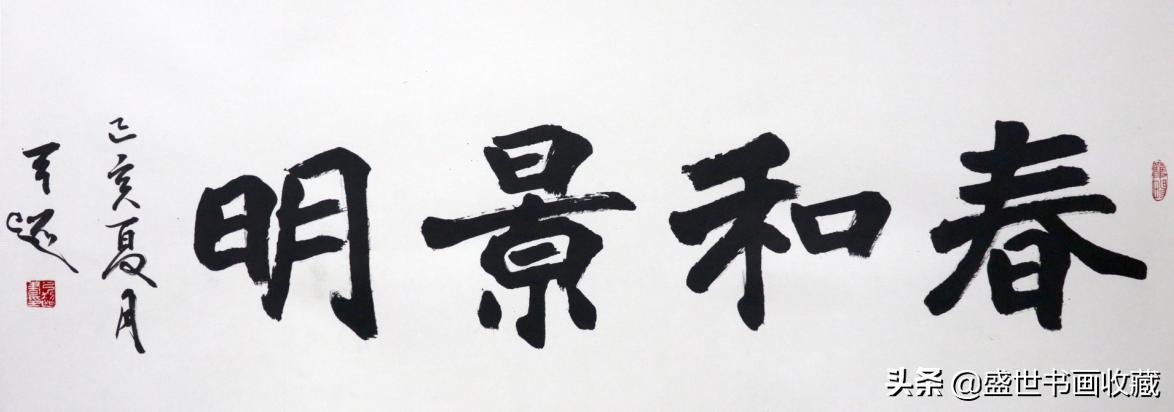 春和景明
己亥夏月
头条 @盛世书画收藏